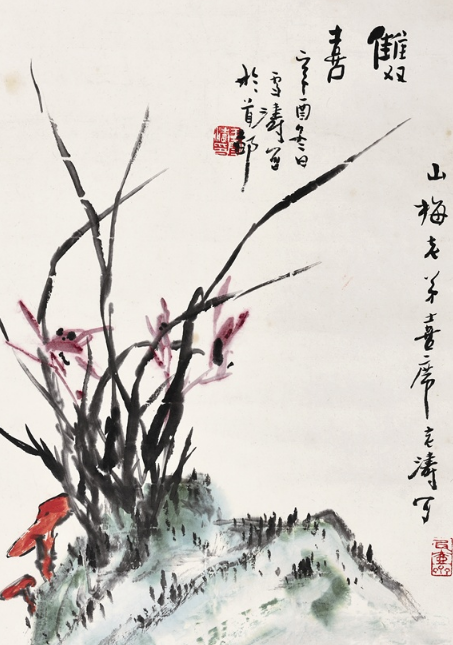 雙
喜
辛酉冬日
雪濤寫
於首都
山梅老弟喜席老濤写